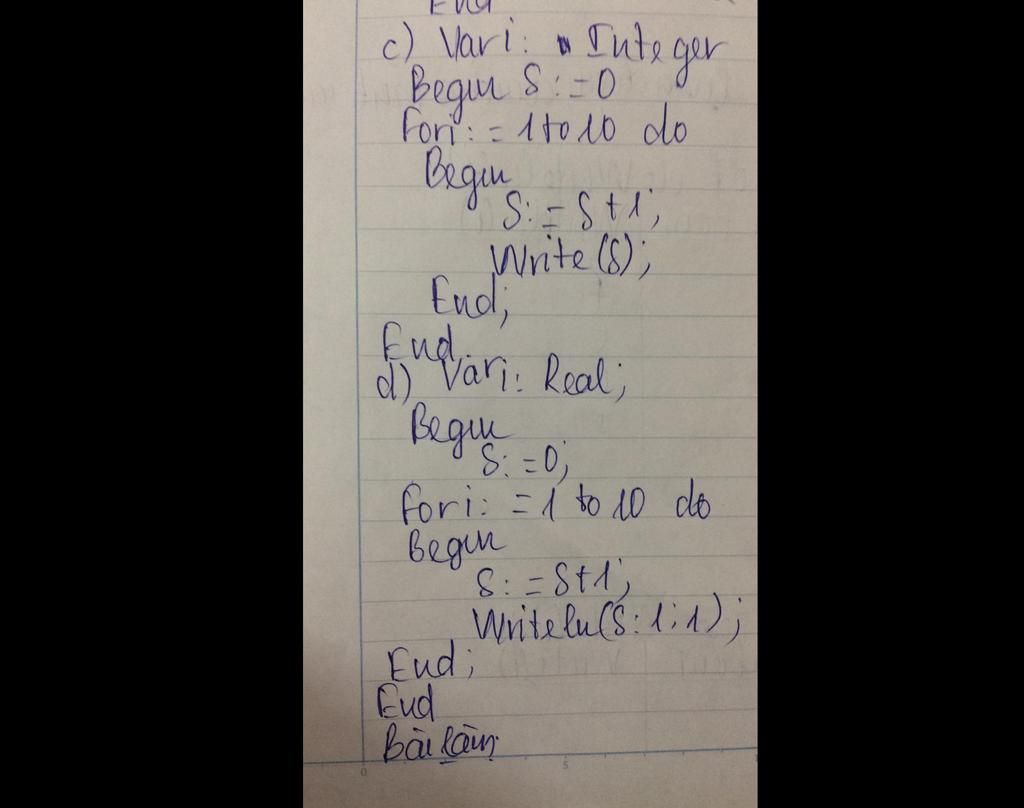 End
c) Vari: Integer
Begin S:=0
Fori:=1 to 10 do
Begin
S:=S+1;
Write(S);
End;
End.
d) Vari: Real;
Begin
S:=0;
Fori:=1 to 10 do
Begin
S:=S+1;
Writeln(S:1;1);
End;
End
Bài làm: